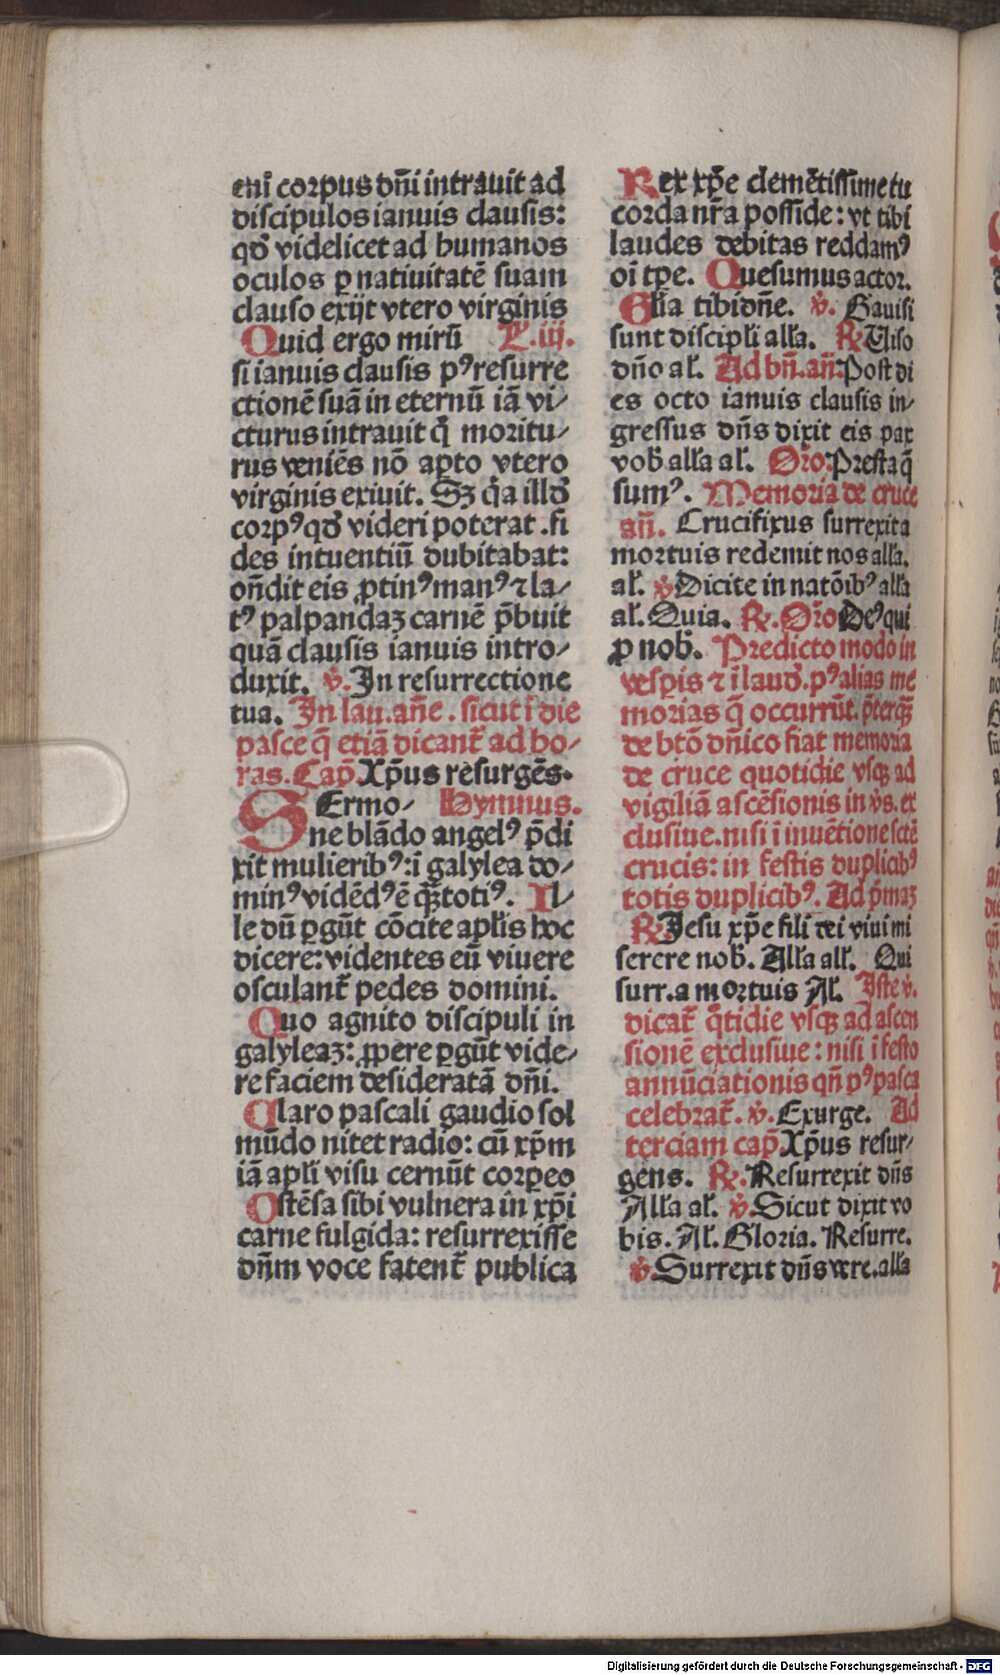 eni̅ corpus dn̄i intrauit ad
discipulos ianuis clausis:
qd̕ videlicet ad humanos
oculos ꝑ natiuitatē suam
clauso exijt vtero virginis
Quid ergo mirū L.iij.
si ianuis clausis pꝰ resurre
ctionē suā in eternū iā vi⸗
cturus intrauit q̄ moritu⸗
rus veniēs nō apto vtero
virginis exiuit. Sꝫ q̄a illd̕
corpꝰ qd̕ videri poterat .fi
des intuentiū dubitabat:
on̄dit eis ꝓtinꝰ manꝰ ⁊ la⸗
tꝰ palpandaꝫ carnē p̄buit
quā clausis ianuis intro⸗
duxit. ℣. In resurrectione
tua. In lau. an̄e . sicut ī die
pasce q̄ etiā dicant᷑ ad ho⸗
ras. Cap̄ Xp̄us resurgēs.
SErmo⸗ Hymnus.
ne blādo angelꝰ p̄di
xit mulieribꝰ: ī galylea do⸗
minꝰ vidēdꝰ ē qꝫ̄ totiꝰ. Il⸗
le dū ꝑgūt cōcite apl̄is hoc
dicere: videntes eū viuere
osculant᷑ pedes domini.
Quo agnito discipuli in
galyleaꝫ: ꝓpere ꝑgūt vide⸗
re faciem desideratā dn̄i.
Claro pascali gaudio sol
mūdo nitet radio: cū xp̄m
iā apl̄i visu cernūt corpeo
Ostēsa sibi vulnera in xp̄i
carne fulgida: resurrexisse
dn̄m voce fatent᷑ publica
Rex xp̄e clemētissime tu
corda nr̄a posside: vt tibi
laudes debitas reddamꝰ
oī tp̄e. Quesumus actor.
Gl̄ia tibi dn̄e. ℣. Gauisi
sunt discipl̄i all̄a. ℟ Uiso
dn̄o al̄. Ad bn̄. an̄: Post di
es octo ianuis clausis in⸗
gressus dn̄s dixit eis pax
vob̕ all̄a al̄. Or̄o: Presta q̄
sumꝰ. Memoria de cruce
an̄. Crucifixus surrexit a
mortuis redemit nos all̄a.
al̄. ℣ Dicite in natōibꝰ all̄a
al̄. Quia. ℟. Or̄o Deꝰ qui
ꝓ nob̕. Predicto modo in
vesp̄is ⁊ ī laud̕. pꝰ alias me
morias q̄ occurrūt. p̄terqꝫ̄
de btō dn̄ico fiat memoria
de cruce quotidie vsqꝫ ad
vigiliā ascēsionis in v̄s. ex
clusiue. nisi ī inuētione sctē
crucis: in festis duplicibꝰ
totis duplicibꝰ. Ad p̄maꝫ
℟ Jesu xp̄e fili dei viui mi
serere nob̕. All̄a all̄. Qui
surr. a mortuis Al̄. Iste ℣.
dicat᷑ q̄tidie vsqꝫ ad ascen
sionē exclusiue: nisi ī festo
annūciationis qn̄ pꝰ pasca
celebrat᷑. ℣. Exurge. Ad
terciam cap̄. Xp̄us resur⸗
gens. ℟. Resurrexit dn̄s
All̄a al̄. ℣. Sicut dixit vo
bis. Al̄. Gloria. Resurre.
℣. Surrexit dn̄s vere. all̄a
Digitalisierung gefördert durch die Deutsche Forschungsgemeinschaft - DFG